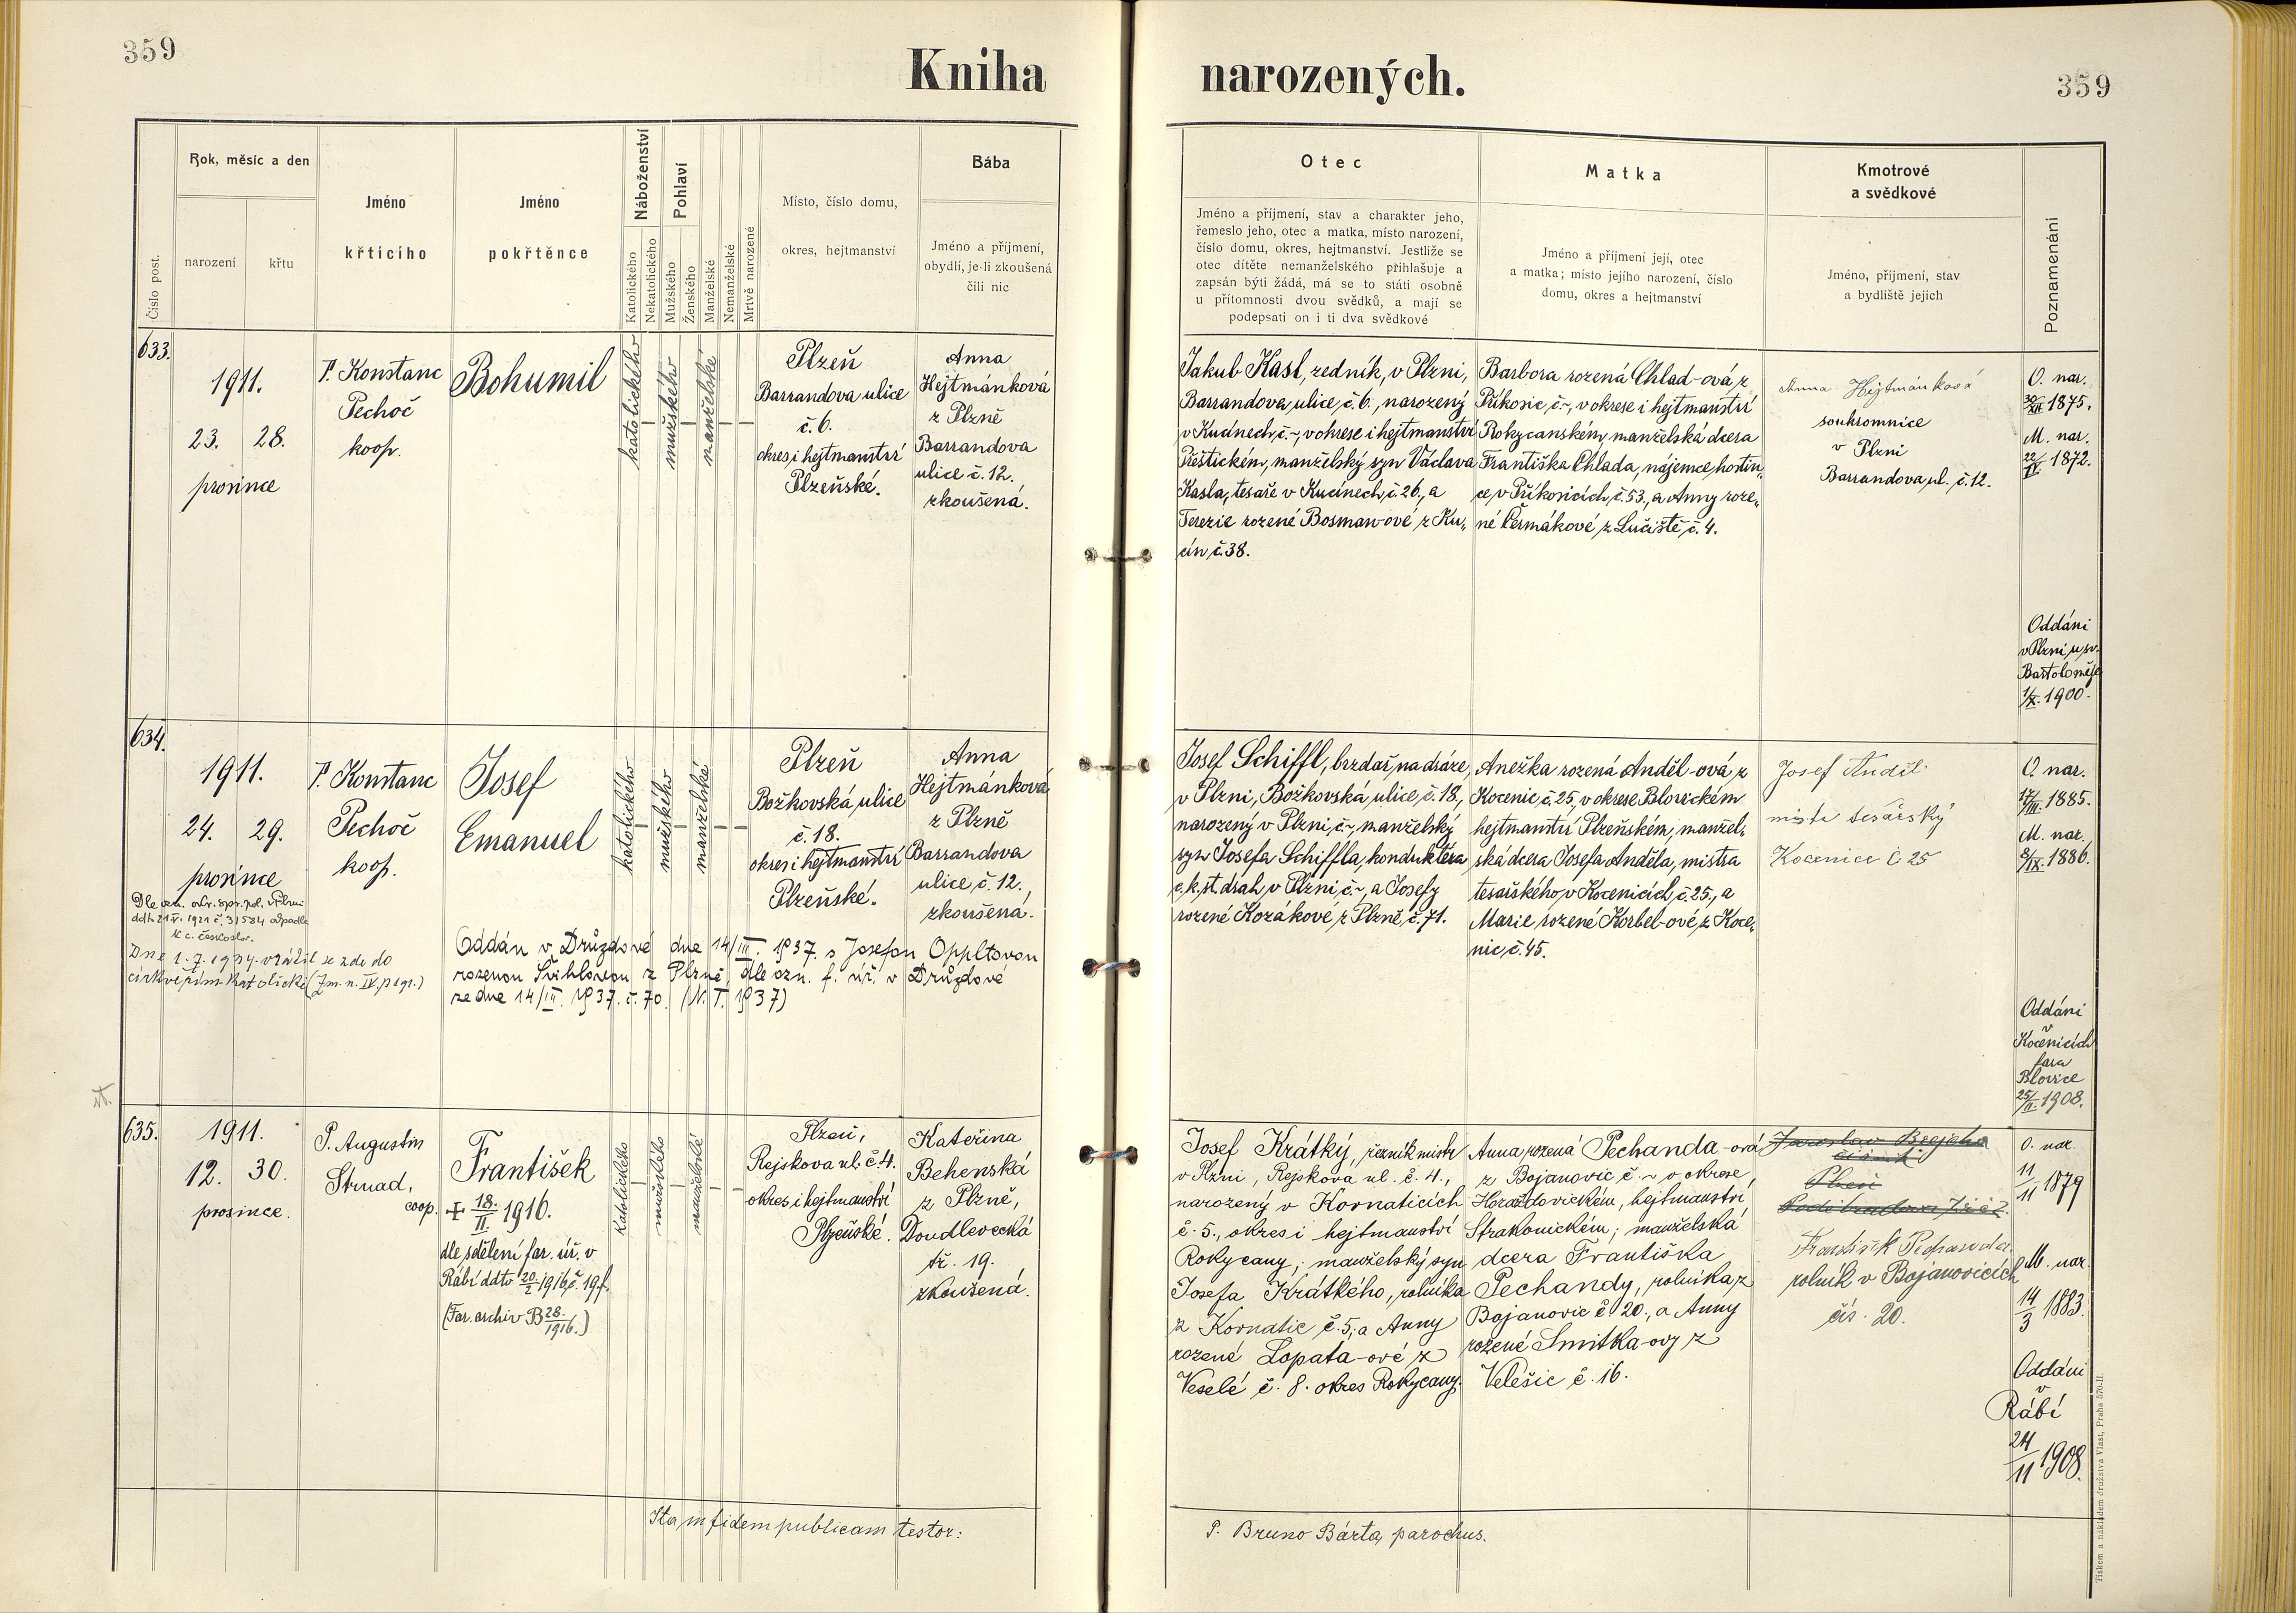 359
Kniha narozených.
359
Číslo post.
Rok, měsíc a den
narození
křtu
Jméno
křtícího
Jméno
pokřtěnce
Náboženství
Katolického
Nekatolického
Pohlaví
Mužského
Ženského
Manželské
Nemanželské
Mrtvě narozené
Místo, číslo domu,
okres, hejtmanství
Bába
Jméno a příjmení,
obydlí, je-li zkoušená
čili nic
Otec
Jméno a příjmení, stav a charakter jeho,
řemeslo jeho, otec a matka, místo narození,
číslo domu, okres, hejtmanství. Jestliže se
otec dítěte nemanželského přihlašuje a
zapsán býti žádá, má se to státi osobně
u přítomnosti dvou svědků, a mají se
podepsati on i ti dva svědkové
Matka
Jméno a příjmení její, otec
a matka; místo jejího narození, číslo
domu, okres a hejtmanství
Kmotrové
a svědkové
Jméno, příjmení, stav
a bydliště jejich
Poznamenání
633.
1911.
23. 28.
prosince
P. Konstanc
Pechoč
koop.
Bohumil
katolického
mužského
manželské
Plzeň
Barrandova ulice
č. 6.
okres i hejtmanství
Plzeňské.
Anna
Hejtmánková
z Plzně
Barrandova
ulice č. 12.
zkoušená.
Jakub Kasl, zedník, v Plzni,
Barrandova ulice, č. 6., narozený
v Kucínech, č.~, v okrese i hejtmanství
Přeštickém, manželský syn Václava
Kasla, tesaře v Kucínech, č. 26., a
Terezie rozené Bosman-ové z Ku„
cín č. 38.
Barbora rozená Chlad-ová z
Příkosic, č.~, v okrese i hejtmanství
Rokycanském, manželská dcera
Františka Chlada, nájemce hostin„
ce v Příkosicích, č. 53., a Anny roze„
né Čermákové z Lučiště č. 4.
Anna Hejtmánková
soukromnice
v Plzni
Barrandova ul. č. 12.
O. nar.
30/XII. 1875.
M. nar.
22/IV. 1872.
Oddáni
v Plzni u sv.
Bartoloměje
1/X. 1900.
634.
1911.
24. 29.
prosince
P. Konstanc
Pechoč
koop.
Josef
Emanuel
katolického
mužského
manželské
Plzeň
Božkovská ulice
č. 18.
okres i hejtmanství
Plzeňské.
Anna
Hejtmánková
z Plzně
Barrandova
ulice č. 12.,
zkoušená.
Dle ozn. okr. spr. pol. v Plzni
ddto 21/V. 1921 č. 31584 odpadl
k c. českoslov.
Dne 1. 7. 1934 vrátil se zde do
církve řím. katolické
Oddán v Druzdové dne 14/III. 1937. s Josefou Oppltovou
rozenou Švihlovou z Plzně, dle ozn. f. úř. v Druzdové
ze dne 14/III. 1937. č. 70. (N. T. 1937)
Josef Schiffl, brzdař na dráze,
v Plzni, Božkovská ulice, č. 18.,
narozený v Plzni, č.~, manželský
syn Josefa Schiffla, konduktéra
c. k. st. drah v Plzni č.~, a Josefy
rozené Kozákové z Plzně, č. 71.
Anežka rozená Anděl-ová z
Kocenic č. 25, v okrese Blovickém
hejtmanství Plzeňském, manžel„
ská dcera Josefa Anděla, mistra
tesařského, v Kocenicích, č. 25., a
Marie rozené Korbel-ové, z Koce„
nic č. 45.
Josef Anděl
mistr tesařský
Kocenice č 25
O. nar.
17/III. 1885.
M. nar.
8/IX. 1886.
Oddáni
v
Kocenicích
fara
Blovice
25/II. 1908.
635.
1911.
12. 30.
prosince.
P. Augustin
Strnad,
coop.
František
+ 18./II. 1916.
dle sdělení far. úř. v
Rábí ddto 20./2 1916, č. 19 f.
(Far. archiv B 28./1916.)
Katolického
mužského
manželské
Plzeň,
Rejskova ul. č. 4.
okres i hejtmanství
Plzeňské.
Kateřina
Behenská
z Plzně,
Doudlevecká
tř. 19.
zkoušená.
Josef Krátký, řezník mistr
v Plzni, Rejskova ul. č. 4.,
narozený v Kornaticích
č. 5., okres i hejtmanství
Rokycany; manželský syn
Josefa Krátkého, rolníka
z Kornatic č. 5, a Anny
rozené Lopata-ové z
Veselé č. 8. okres Rokycany.
Anna rozená Pechanda-ová
z Bojanovic č ~ v okrese,
Horažďovickém, hejtmanství
Strakonickém; manželská
dcera Františka
Pechandy, rolníka z
Bojanovic č 20., a Anny
rozené Smitka-ovy z
Velešic č. 16.
František Pechanda
rolník v Bojanovicích
čís. 20.
O. nar.
11/11 1879
M. nar.
14/3 1883.
Oddáni
v
Rábí
24/11 1908.
Ita in fidem publicam testor:
P. Bruno Bárta, parochus.
Tiskem a nákladem družstva Vlast, Praha 570-II.